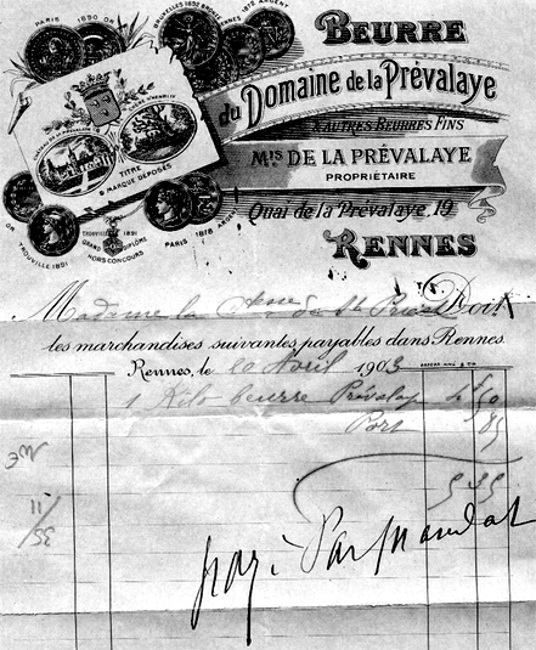 PARIS 1890 OR
BRUXELLES 1892 BRONZE
RENNES 1872 ARGENT
BEURRE
du Domaine de la Prévalaye
& AUTRES BEURRES FINS
Mis DE LA PRÉVALAYE
PROPRIÉTAIRE
Quai de la Prévalaye, 19
RENNES
CHATEAU DE LA PRÉVALAYE
CHÊNE D'HENRI IV
TITRE
& MARQUE DÉPOSÉS
OR TROUVILLE 1891
TROUVILLE 1891
GRAND DIPLÔME
HORS CONCOURS
PARIS 1878 ARGENT
Madame la Ctesse de St Priest Doit
les marchandises suivantes payables dans Rennes.
Rennes, le 20 Avril 1903
1 Kilo beurre Prévalaye 4 f 50
Port 85
5 35
payé Par mandat